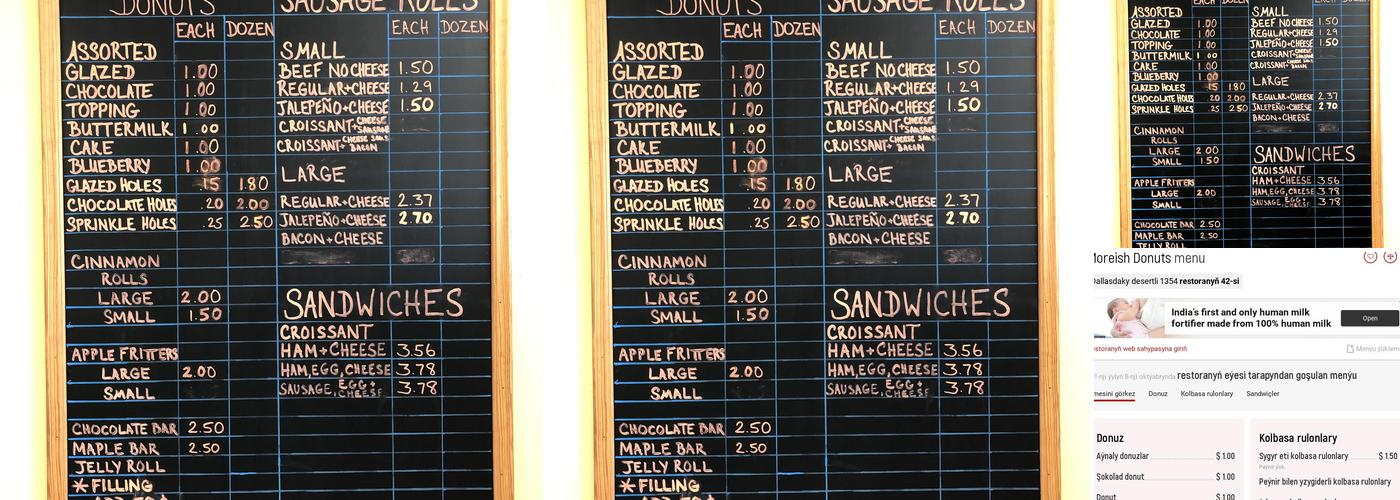 DONUTS
EACH DOZEN
ASSORTED
GLAZED 1.00
CHOCOLATE 1.00
TOPPING 1.00
BUTTERMILK 1.00
CAKE 1.00
BLUEBERRY 1.00
GLAZED HOLES 15 1.80
CHOCOLATE HOLES .20 2.00
SPRINKLE HOLES .25 2.50
CINNAMON
ROLLS
LARGE 2.00
SMALL 1.50
APPLE FRITTERS
LARGE 2.00
SMALL
CHOCOLATE BAR 2.50
MAPLE BAR 2.50
JELLY ROLL
*FILLING
SAUSAGE ROLLS
EACH DOZEN
SMALL
BEEF NO CHEESE 1.50
REGULAR+CHEESE 1.29
JALEPEÑO+CHEESE 1.50
CROISSANT+CHEESE SAUSAGE
CROISSANT+CHEESE SAUS. BACON
LARGE
REGULAR+CHEESE 2.37
JALEPEÑO+CHEESE 2.70
BACON+CHEESE
SANDWICHES
CROISSANT
HAM+CHEESE 3.56
HAM,EGG,CHEESE 3.78
SAUSAGE, EGG+CHEESE 3.78
DONUTS
EACH DOZEN
ASSORTED
GLAZED 1.00
CHOCOLATE 1.00
TOPPING 1.00
BUTTERMILK 1.00
CAKE 1.00
BLUEBERRY 1.00
GLAZED HOLES 15 1.80
CHOCOLATE HOLES .20 2.00
SPRINKLE HOLES .25 2.50
CINNAMON
ROLLS
LARGE 2.00
SMALL 1.50
APPLE FRITTERS
LARGE 2.00
SMALL
CHOCOLATE BAR 2.50
MAPLE BAR 2.50
JELLY ROLL
*FILLING
SAUSAGE ROLLS
EACH DOZEN
SMALL
BEEF NO CHEESE 1.50
REGULAR+CHEESE 1.29
JALEPEÑO+CHEESE 1.50
CROISSANT+CHEESE SAUSAGE
CROISSANT+CHEESE SAUS. BACON
LARGE
REGULAR+CHEESE 2.37
JALEPEÑO+CHEESE 2.70
BACON+CHEESE
SANDWICHES
CROISSANT
HAM+CHEESE 3.56
HAM,EGG,CHEESE 3.78
SAUSAGE, EGG+CHEESE 3.78
ASSORTED
GLAZED 1.00
CHOCOLATE 1.00
TOPPING 1.00
BUTTERMILK 1.00
CAKE 1.00
BLUEBERRY 1.00
GLAZED HOLES 15 1.80
CHOCOLATE HOLES .20 2.00
SPRINKLE HOLES .25 2.50
CINNAMON
ROLLS
LARGE 2.00
SMALL 1.50
APPLE FRITTERS
LARGE 2.00
SMALL
CHOCOLATE BAR 2.50
MAPLE BAR 2.50
JELLY ROLL
SMALL
BEEF NO CHEESE 1.50
REGULAR+CHEESE 1.29
JALEPEÑO+CHEESE 1.50
CROISSANT+CHEESE SAUSAGE
CROISSANT+ BACON
LARGE
REGULAR+CHEESE 2.37
JALEPEÑO+CHEESE 2.70
BACON+CHEESE
SANDWICHES
CROISSANT
HAM+CHEESE 3.56
HAM,EGG,CHEESE 3.78
SAUSAGE, EGG+CHEESE 3.78
Moreish Donuts menu
Dallasdaky desertli 1354 restoranyň 42-si
India's first and only human milk
fortifier made from 100% human milk
Open
restoranyň web sahypasyna giriň
Menýu ýüklem
restoranyň eýesi tarapyndan goşulan menýu
mesini görkez Donuz Kolbasa rulonlary Sandwiçler
Donuz
Aýnaly donuzlar $ 1.00
Şokolad donut $ 1.00
Donut $ 1.00
Kolbasa rulonlary
Sygyr eti kolbasa rulonlary $ 1.50
Peýnir ýok.
Peýnir bilen yzygiderli kolbasa rulonlary